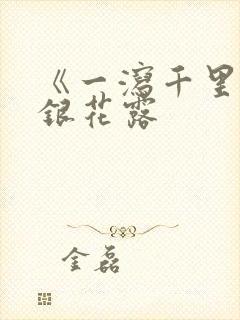 《一瀉千里
銀花露
金磊